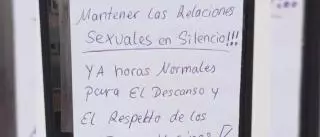 Mantener Las Relaciones
Sexuales en Silencio!!!
YA horas Normales
para El Descanso y
El Respekto de los